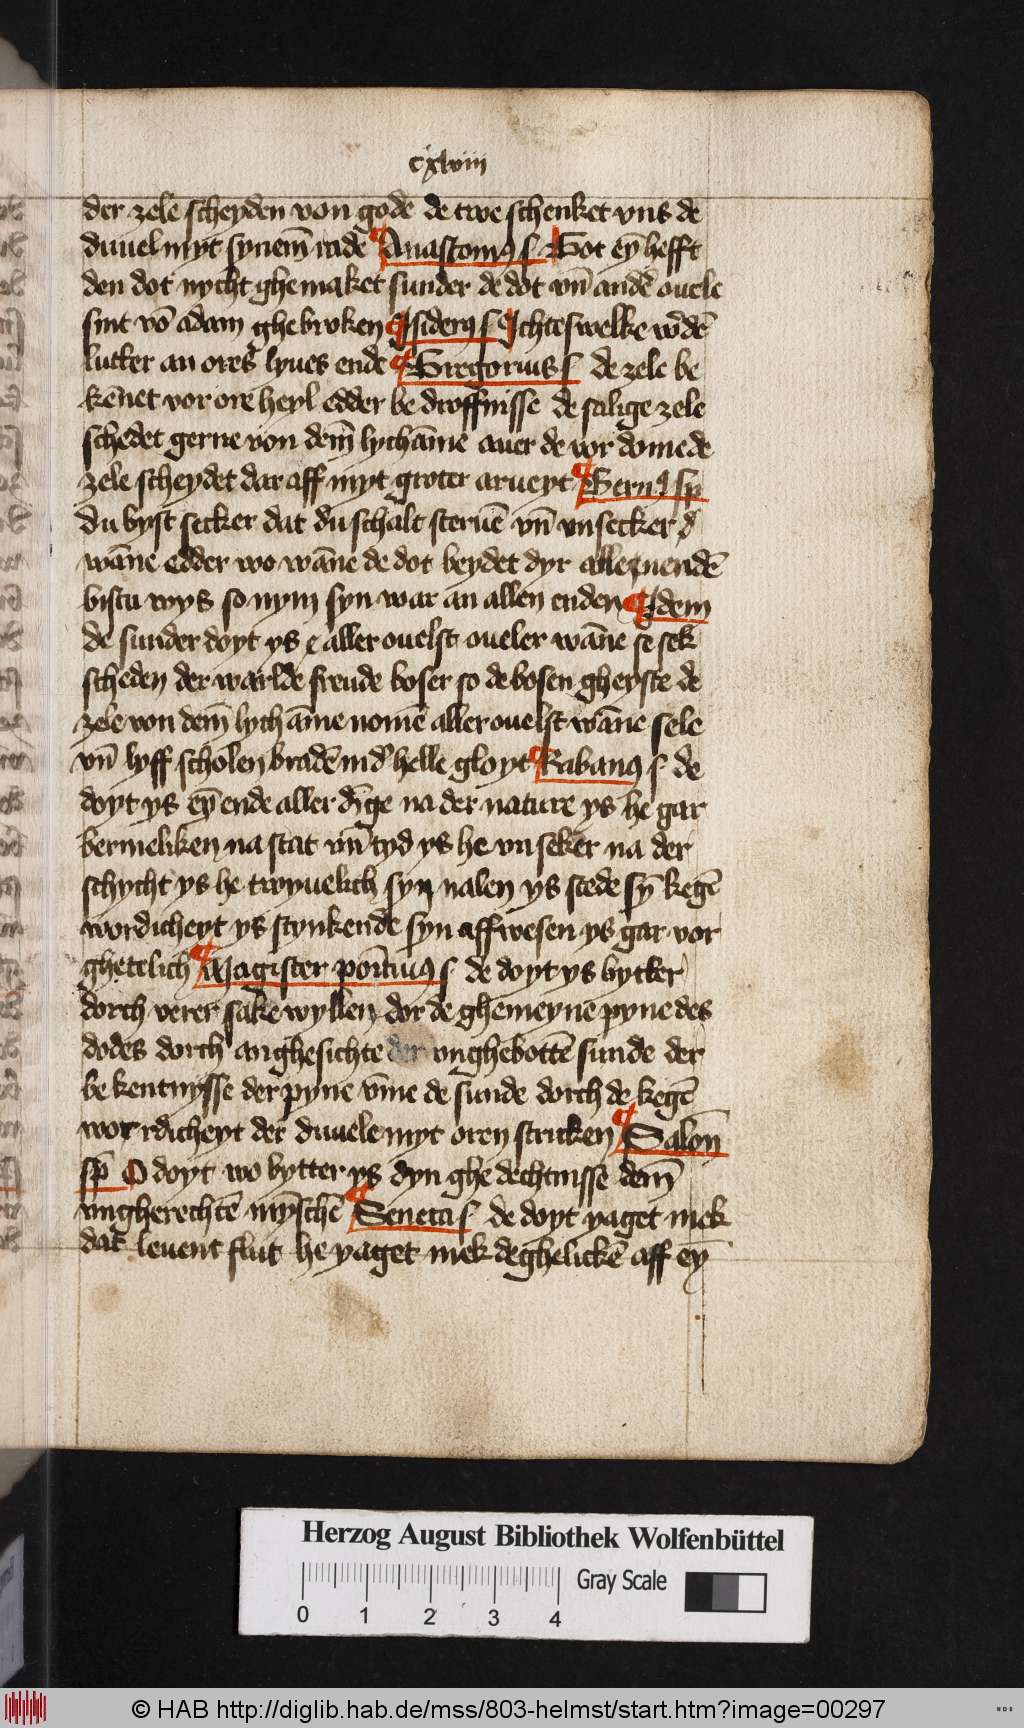 cxlviii
der zele scheyden von gode de twe schenket vns de
duuel myt synem̄ rade ¶ Anastomꝰ s Got ey̅ hefft
den dot nycht ghemaket sunder de dot vn̄ andē ouele
sint vō adam ghebroken ¶ Isiderꝰ s Ichteswelke wdē
lutter an ores lyues ende ¶ Gregorius s de zele be
kēnet vor ore heyl edder be droffnisse de salige zele
schedet gerne von dem̄ lychāme auer de vor domede
zele scheydet dar aff myt groter arueyt ¶ Bernꝰ sp
du byst secker dat du schalt steruē vn̄ vnsecker
wāne edder wo wāne de dot beydet dyr allezuendē
bistu wys so nym syn war an allen enden ¶ Idem
de sunder doyt ys aller ouelst oueler wāne se sek
scheden der warlde freude boser so de bosen gheyste de
zele von dem̄ lych āme nomē aller ouelst wāne sele
vn̄ lyff scholen bradē in d' helle gloyt ¶ Rabanꝰ s de
doyt ys ey̅ ende aller dīge na der nature ys he gar
bermeliken na stat vn̄ tyd ys he vnseker na der
schycht ys he twyuelich syn nalen ys stede sy̅ kegē
wordicheyt ys stynkende syn affwesen ys gar vor
ghetelich ¶ Magister s de doyt ys bytter
dorch verer sake wyllen dor de ghemeynē pyne des
dodes dorch anghesichte der vnghebottē sunde der
be kentnysse der pyne vm̄e de sunde dorch de kegē
wor rdicheyt der duuele myt oren stricken ¶ Salom̄
sp̄ O doyt wo bytter ys dyn ghe dechtnisse dem̄
vngherechtē my̅schē ¶ Seneca s de doyt yaget mek
dat leuent flut he yaget mek deghelickē aff ey̅
Herzog August Bibliothek Wolfenbüttel
Gray Scale
0 1 2 3 4
© HAB http://diglib.hab.de/mss/803-helmst/start.htm?image=00297